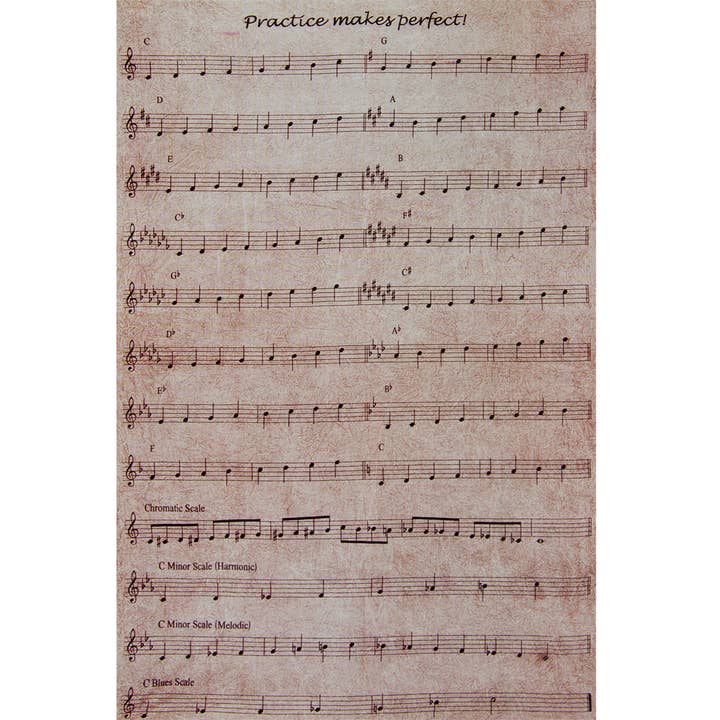 Practice makes perfect!
C G
D A
E B
C♭ F♯
G♭ C♯
D♭ A♭
E♭ B♭
F C
Chromatic Scale
C Minor Scale (Harmonic)
C Minor Scale (Melodic)
C Blues Scale